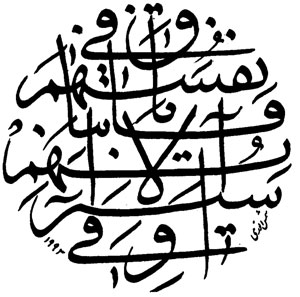 سنريهم آياتنا في الآفاق وفي أنفسهم